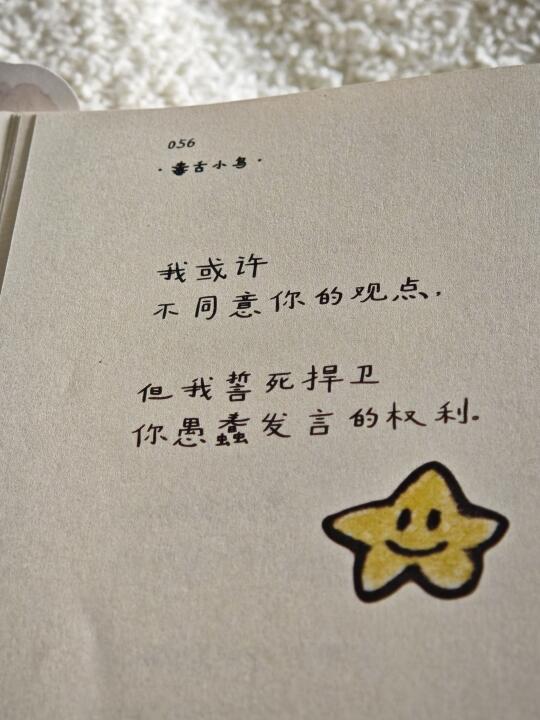 056
·毒舌小鸟·
我或许
不同意你的观点,
但我誓死捍卫
你愚蠢发言的权利。